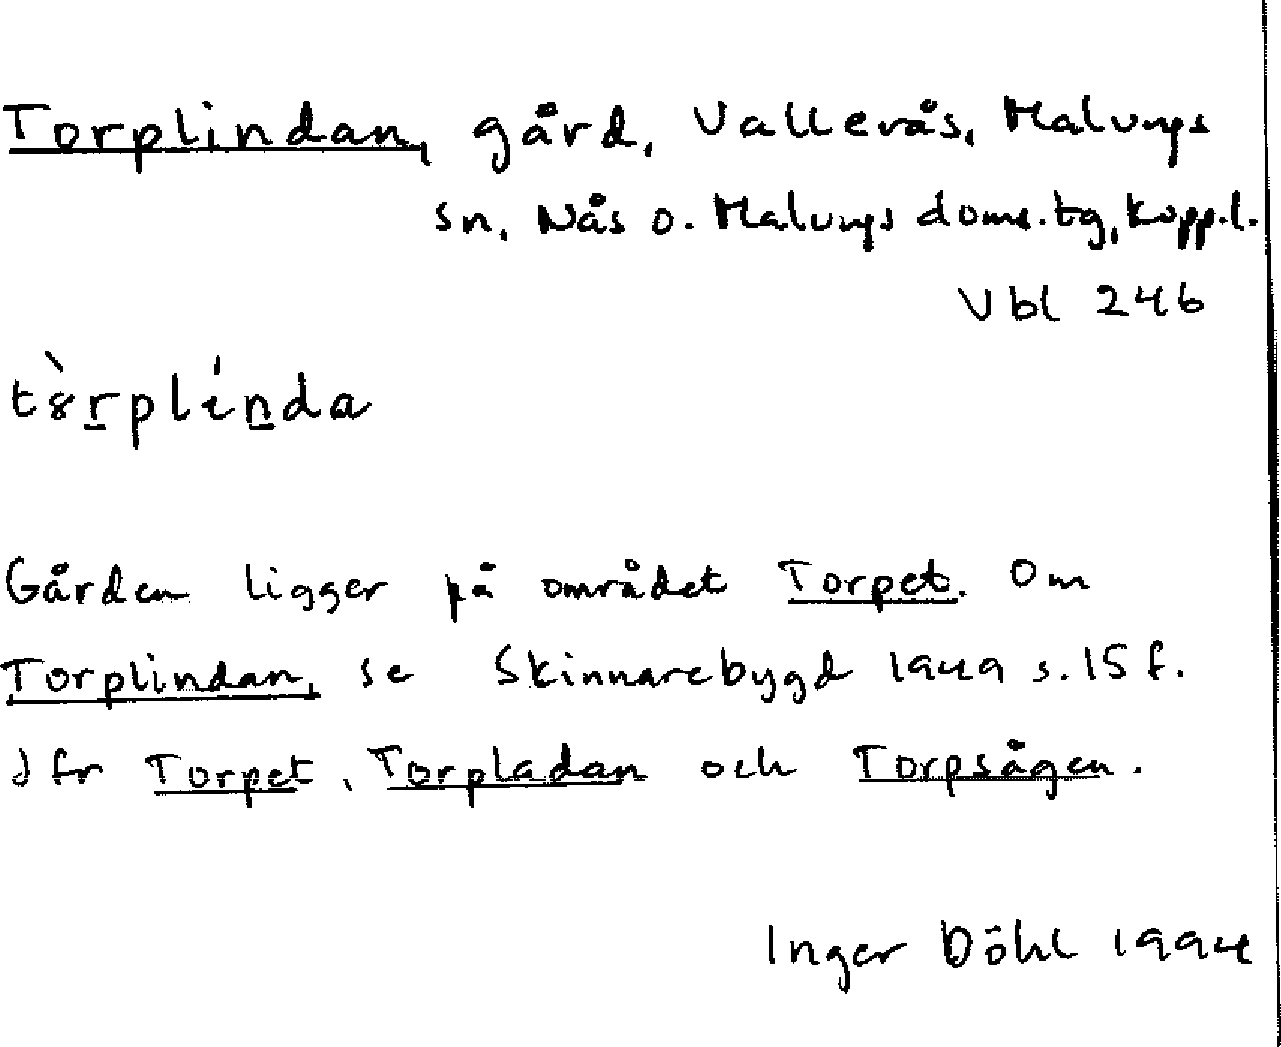 Torplindan, gård, Vallerås, Malungs
sn, Nås o. Malungs doms.tg, Kopp.l.
Vbl 246
tȣ̀rplínda
Gården ligger på området Torpet. Om
Torplindan, se Skinnarebygd 1949 s. 15 f.
Jfr Torpet, Torpladan och Torpsågen.
Inger Döhl 1994